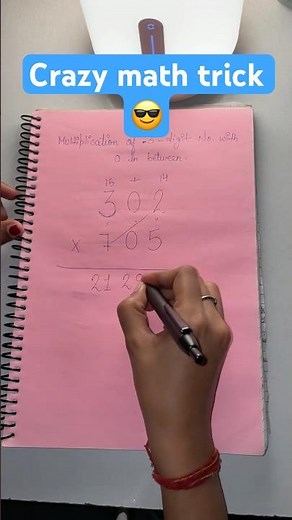 Crazy math trick
😎
Multiplication of 3-digit No. with
0 in between.
15 + 14
302
x 705
21 29